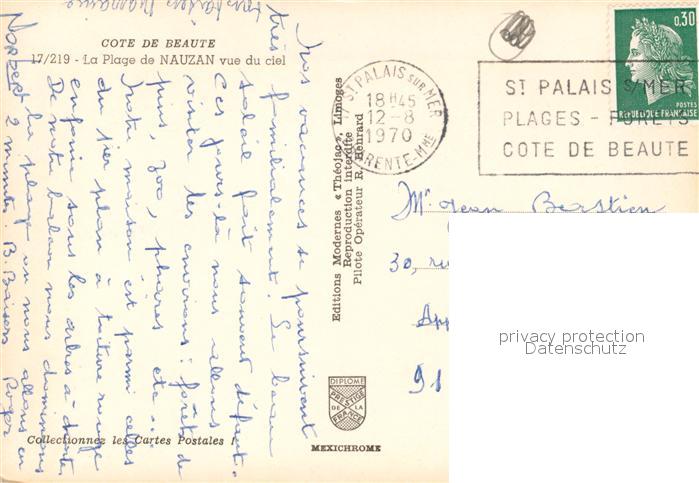 COTE DE BEAUTE
17/219 - La Plage de NAUZAN vue du ciel
Nos vacances se poursuivent
très familialement. Le beau
soleil fait souvent défaut.
Ces jours-là nous allons
visiter les environs : forêts de
pins, zoo, phares, etc...
Notre maison est parmi celles
du 1er plan à toiture rouge
enfouie sous les arbres à droite
De notre balcon nous dominons
la plage où nous allons en
2 minutes. B. Baisers Roger
Norbert
Editions Modernes « Théojac », Limoges
Reproduction interdite
Pilote Opérateur R. Henrard
DIPLOME
PRESTIGE
DE LA
FRANCE
MEXICHROME
Collectionnez les Cartes Postales !
ST PALAIS SUR MER
18H45
12-8
1970
CHARENTE-MME
ST PALAIS S/MER
PLAGES - FORETS
COTE DE BEAUTE
0,30
POSTES
REPUBLIQUE FRANÇAISE
Mr Jean Bastien
30, rue
App
91
privacy protection
Datenschutz